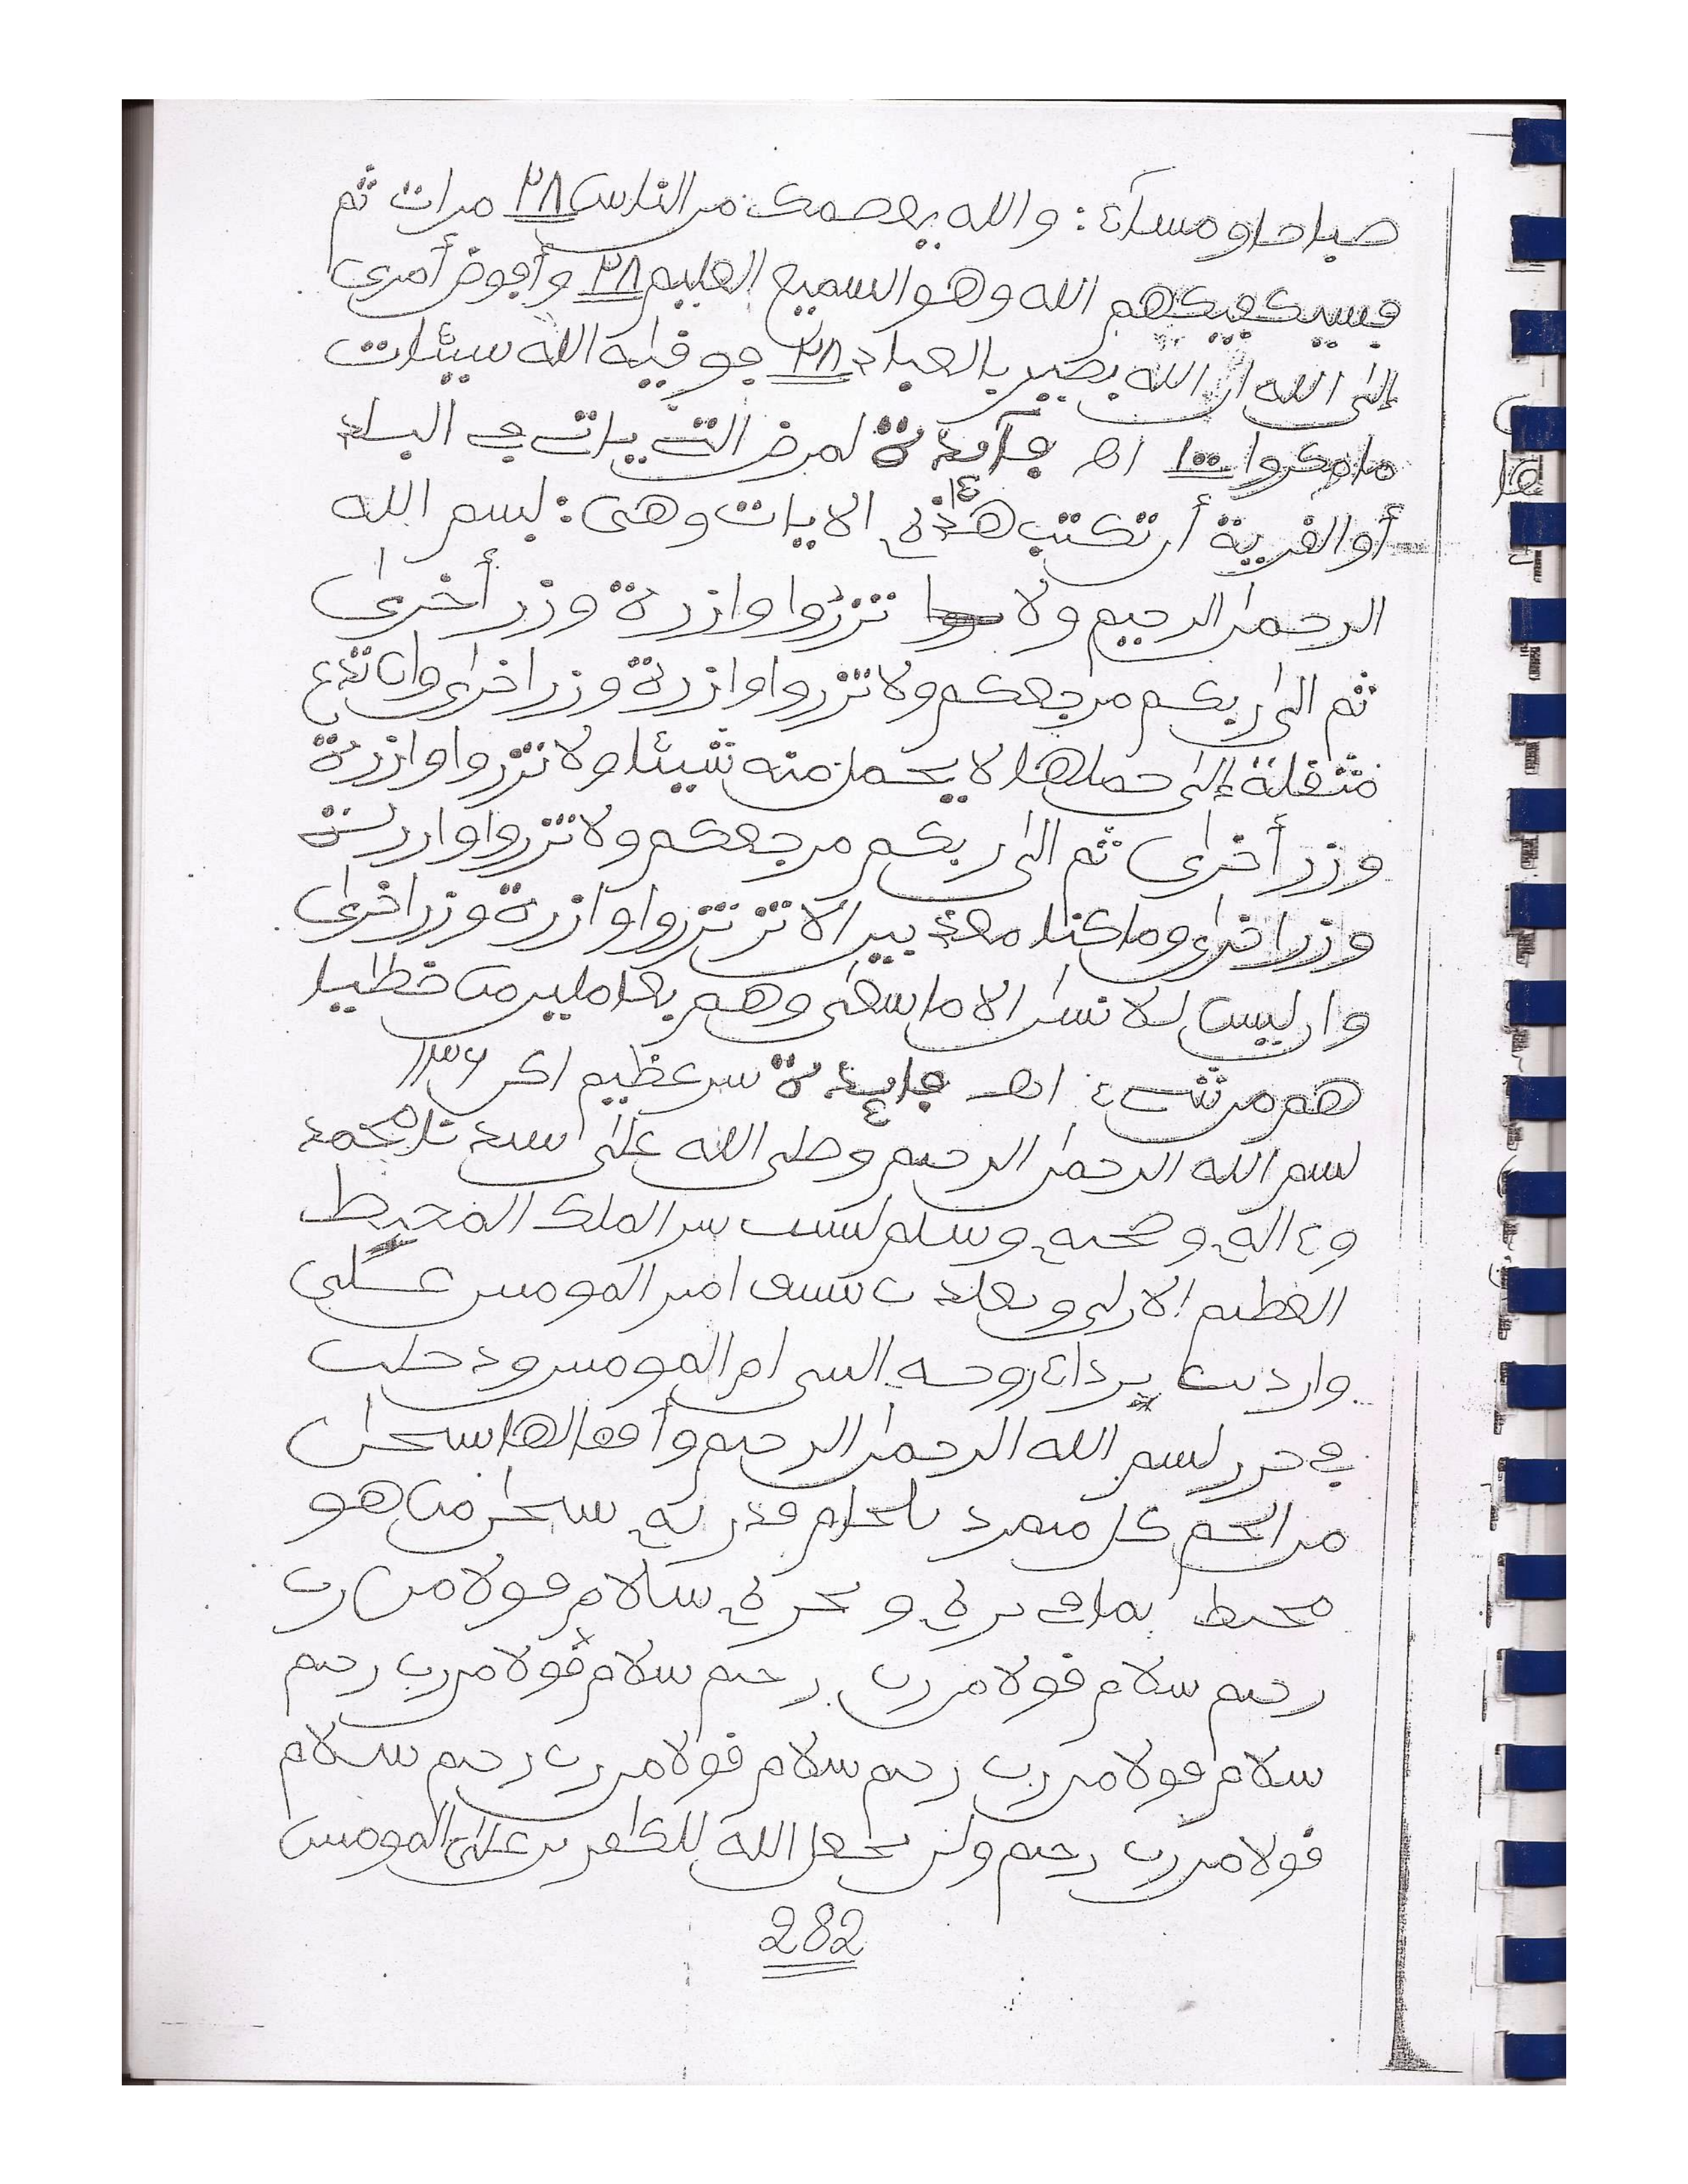 صباحا ومساء: والله يعصمك من الناس ٢٨ مرات ثم
فسيكفيكهم الله وهو السميع العليم ٢٨ وأفوض أمرى
إلى الله ان الله بصير بالعباد ٢٨ فوقيه الله سيئات
ما مكروا ١٠٠ اهـ فآيدة لمرض التى يات فى البلد
أو القرية أن تكتب هذه الايات وهى: بسم الله
الرحمن الرحيم ولا تزروا وازرة وزر أخرى
ثم الى ربكم مرجعكم ولا تزروا وازرة وزر اخرى وان تدع
مثقلة إلى حملها لا يحمل منه شيئا ولا تزروا وازرة
وزر أخرى ثم الى ربكم مرجعكم ولا تزروا وازرة
وزر اخرى وما كنا معذبين الا تزر تزروا وازرة وزر اخرى
وان ليس للانسن الا ما سعى وهم بعاملين من خطيا
هم من شىء اهـ فايدة سر عظيم اكر ١١٣٦
بسم الله الرحمن الرحيم وصلى الله على سيدنا محمد
وء اله وصحبه وسلم بسر الملك المحيط
العظيم الازلى امير المومنين على
وارديت برداء روحه ام المومنين ودخلت
فى حرز بسم الله الرحمن الرحيم وأقفالها سبحن
من الجم كل متمرد بلجام قدرته سبحن من هو
محيط بما فى بره وبحره سلام قولا من رب
رحيم سلام قولا من رب رحيم سلام قولا من رب رحيم
سلام قولا من رب رحيم سلام قولا من رب رحيم سلام
قولا من رب رحيم ولن يجعل الله للكفرين على المومنين
282